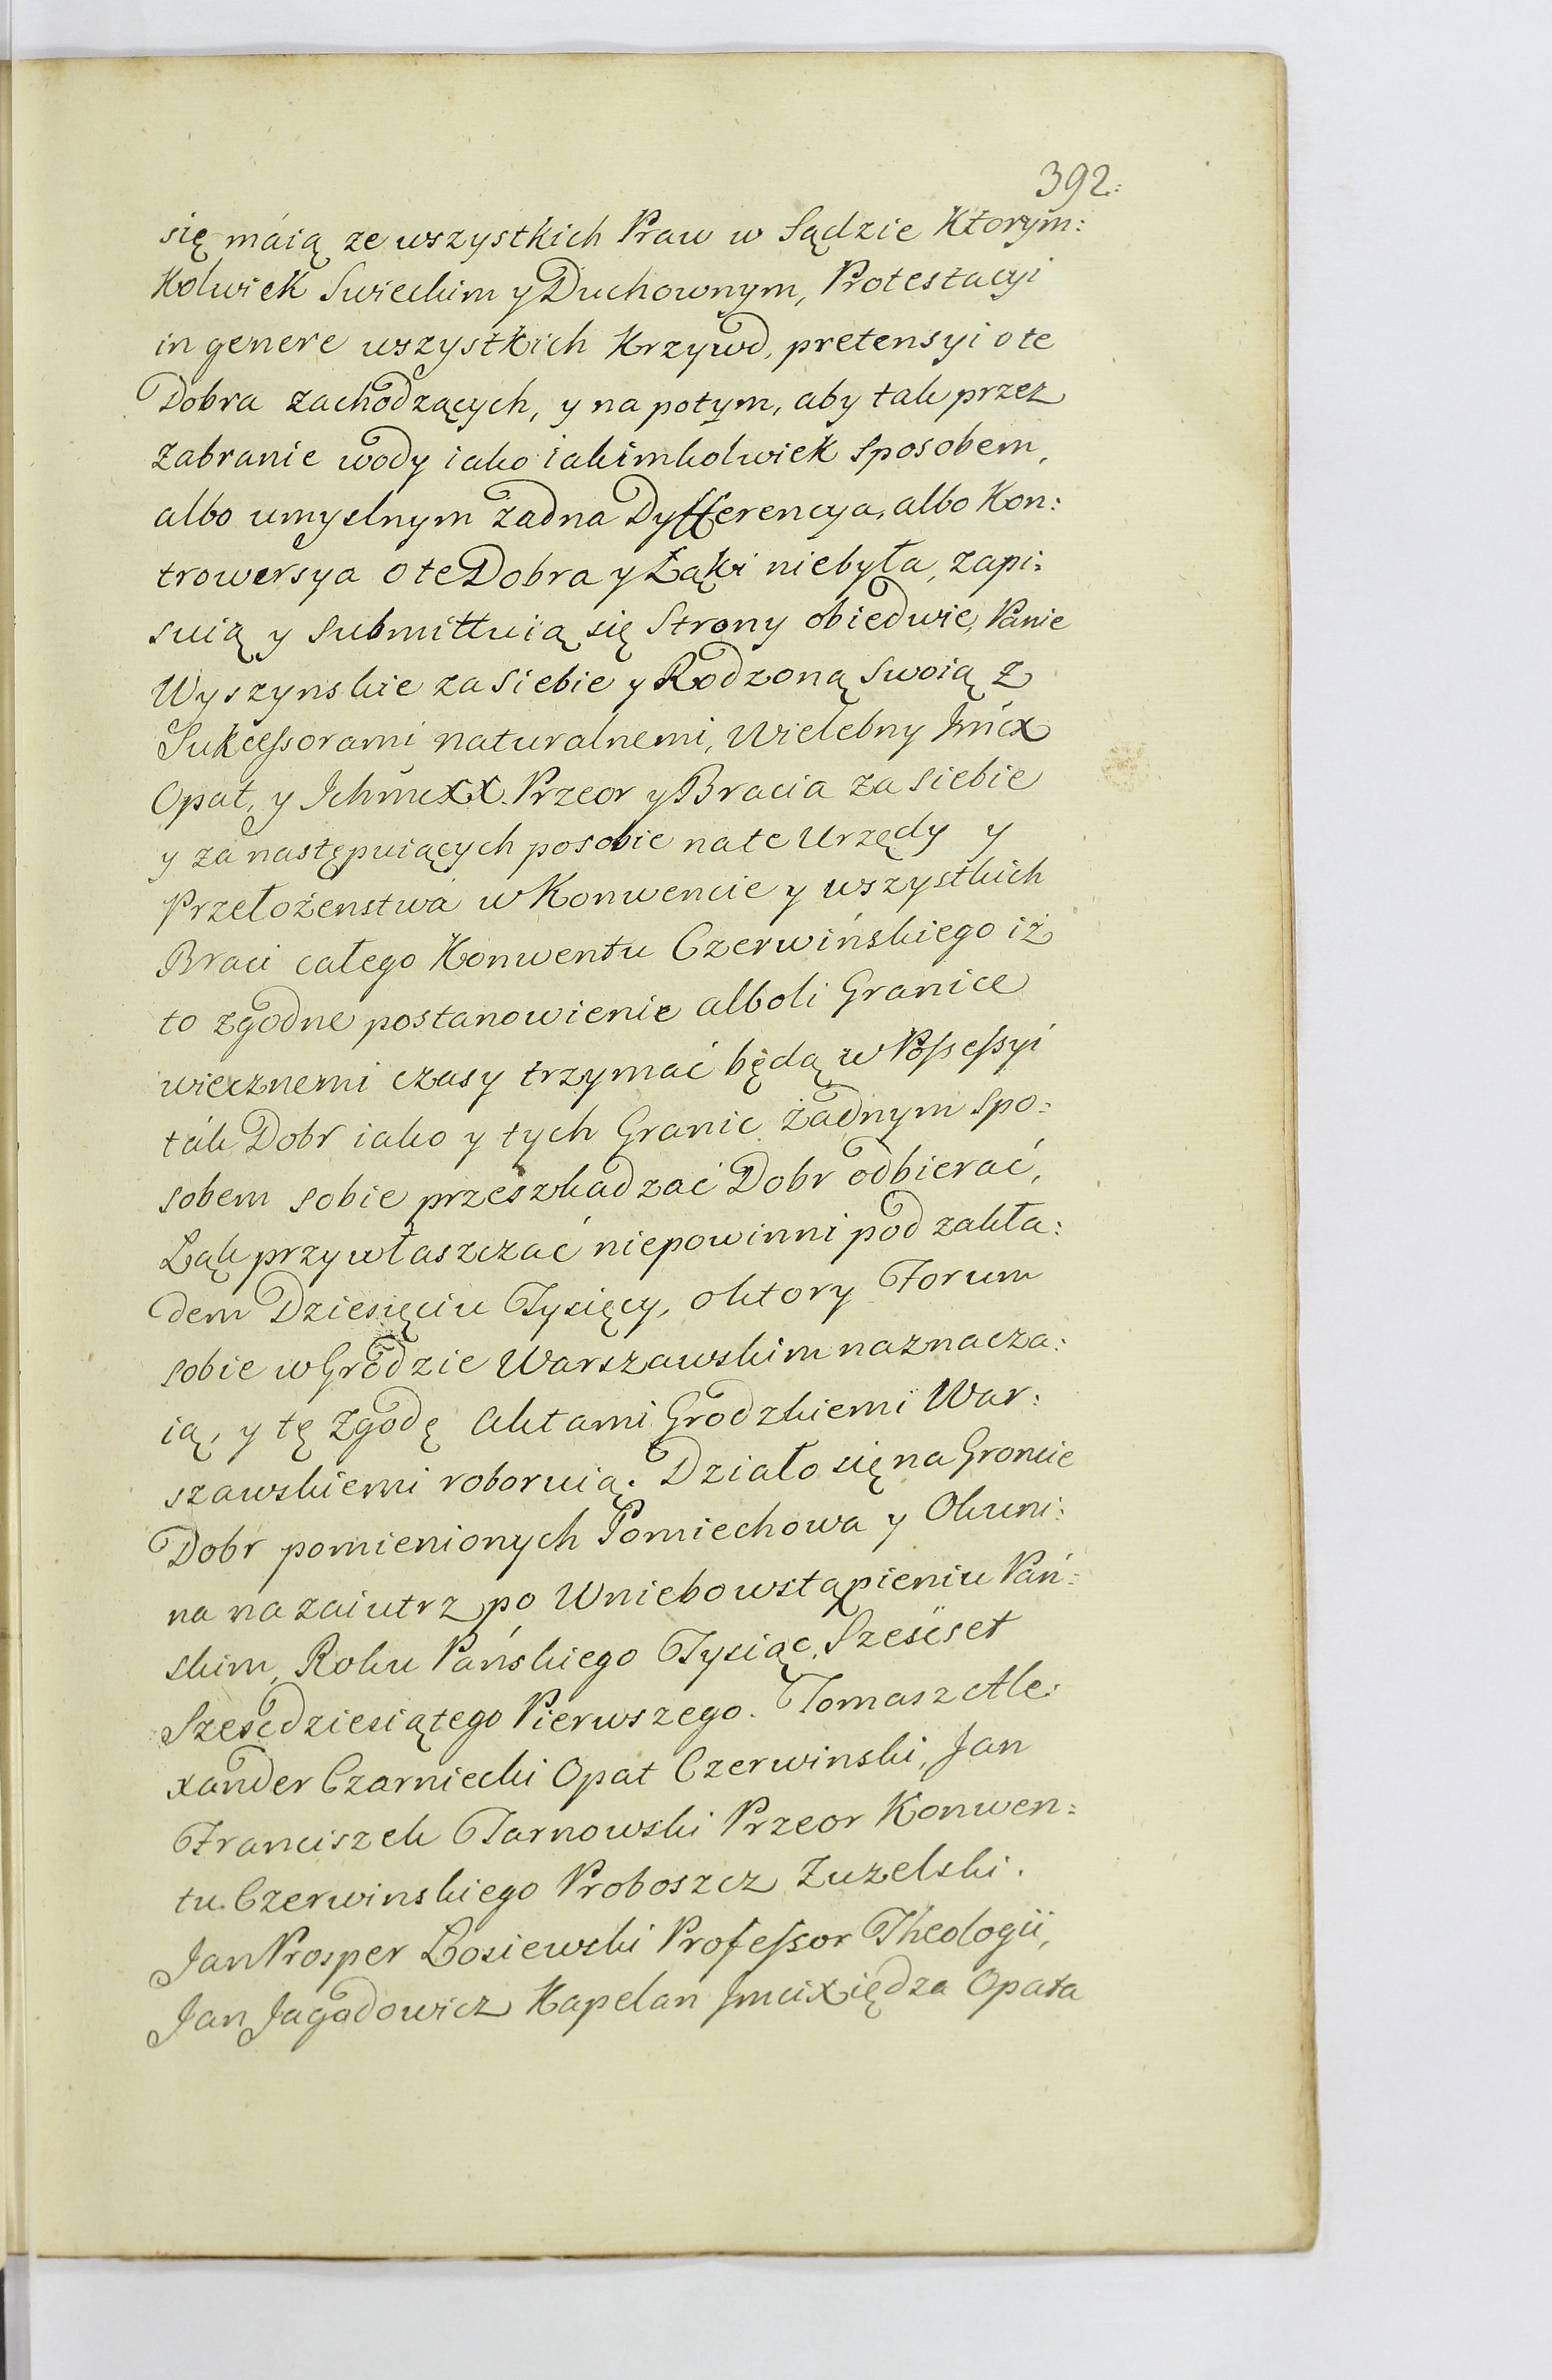 392.
się máią ze wszystkich Praw w Sądzie Ktorym:
Kolwiek Swieckim y Duchownym, Protestacyi
in genere wszystkich Krzywd, pretensyi o te
Dobra zachodzących, y na potym, aby tak przez
zabranie wody iako iakimkolwiek sposobem,
albo umyslnym żadna Dyfferencya, albo Kon:
trowersya o te Dobra y Łąki niebyła, zapi:
suią y submittuią się Strony obiedwie, Panie
Wyszynskie za siebie y Rodzoną swoią z
Sukcessorami naturalnemi, Wielebny Jmćx
Opat, y Ichmcxx. Przeor y Bracia za siebie
y za następuiących posobie na te Urzędy y
Przełożenstwa w Konwencie y wszystkich
Braci całego Konwentu Czerwińskiego iż
to zgodne postanowienie alboli Granice
wiecznemi czasy trzymać będą w Possessyi
ták Dobr iako y tych Granic żadnym spo:
sobem sobie przeszkadzać Dobr odbierać,
Łąk przywłaszczać niepowinni pod zakła:
dem Dziesięciu Tysięcy, o ktory Forum
sobie w Grodzie Warszawskim naznacza:
ią, y tę Zgodę Aktami Grodzkiemi War:
szawskiemi roboruią. Działo się na Groncie
Dobr pomienionych Pomiechowa y Okuni:
na nazaiutrz po Wniebowstąpieniu Pań:
skim, Roku Pańskiego Tysiąc, Sześćset
Sześćdziesiątego Pierwszego. Tomasz Ale:
xander Czarniecki Opat Czerwinski, Jan
Franciszek Tarnowski Przeor Konwen:
tu Czerwinskiego Proboszcz Zuzelski.
Jan Prosper Łosiewski Professor Theologii,
Jan Jagodowicz Kapelan Jmcixiędza Opata